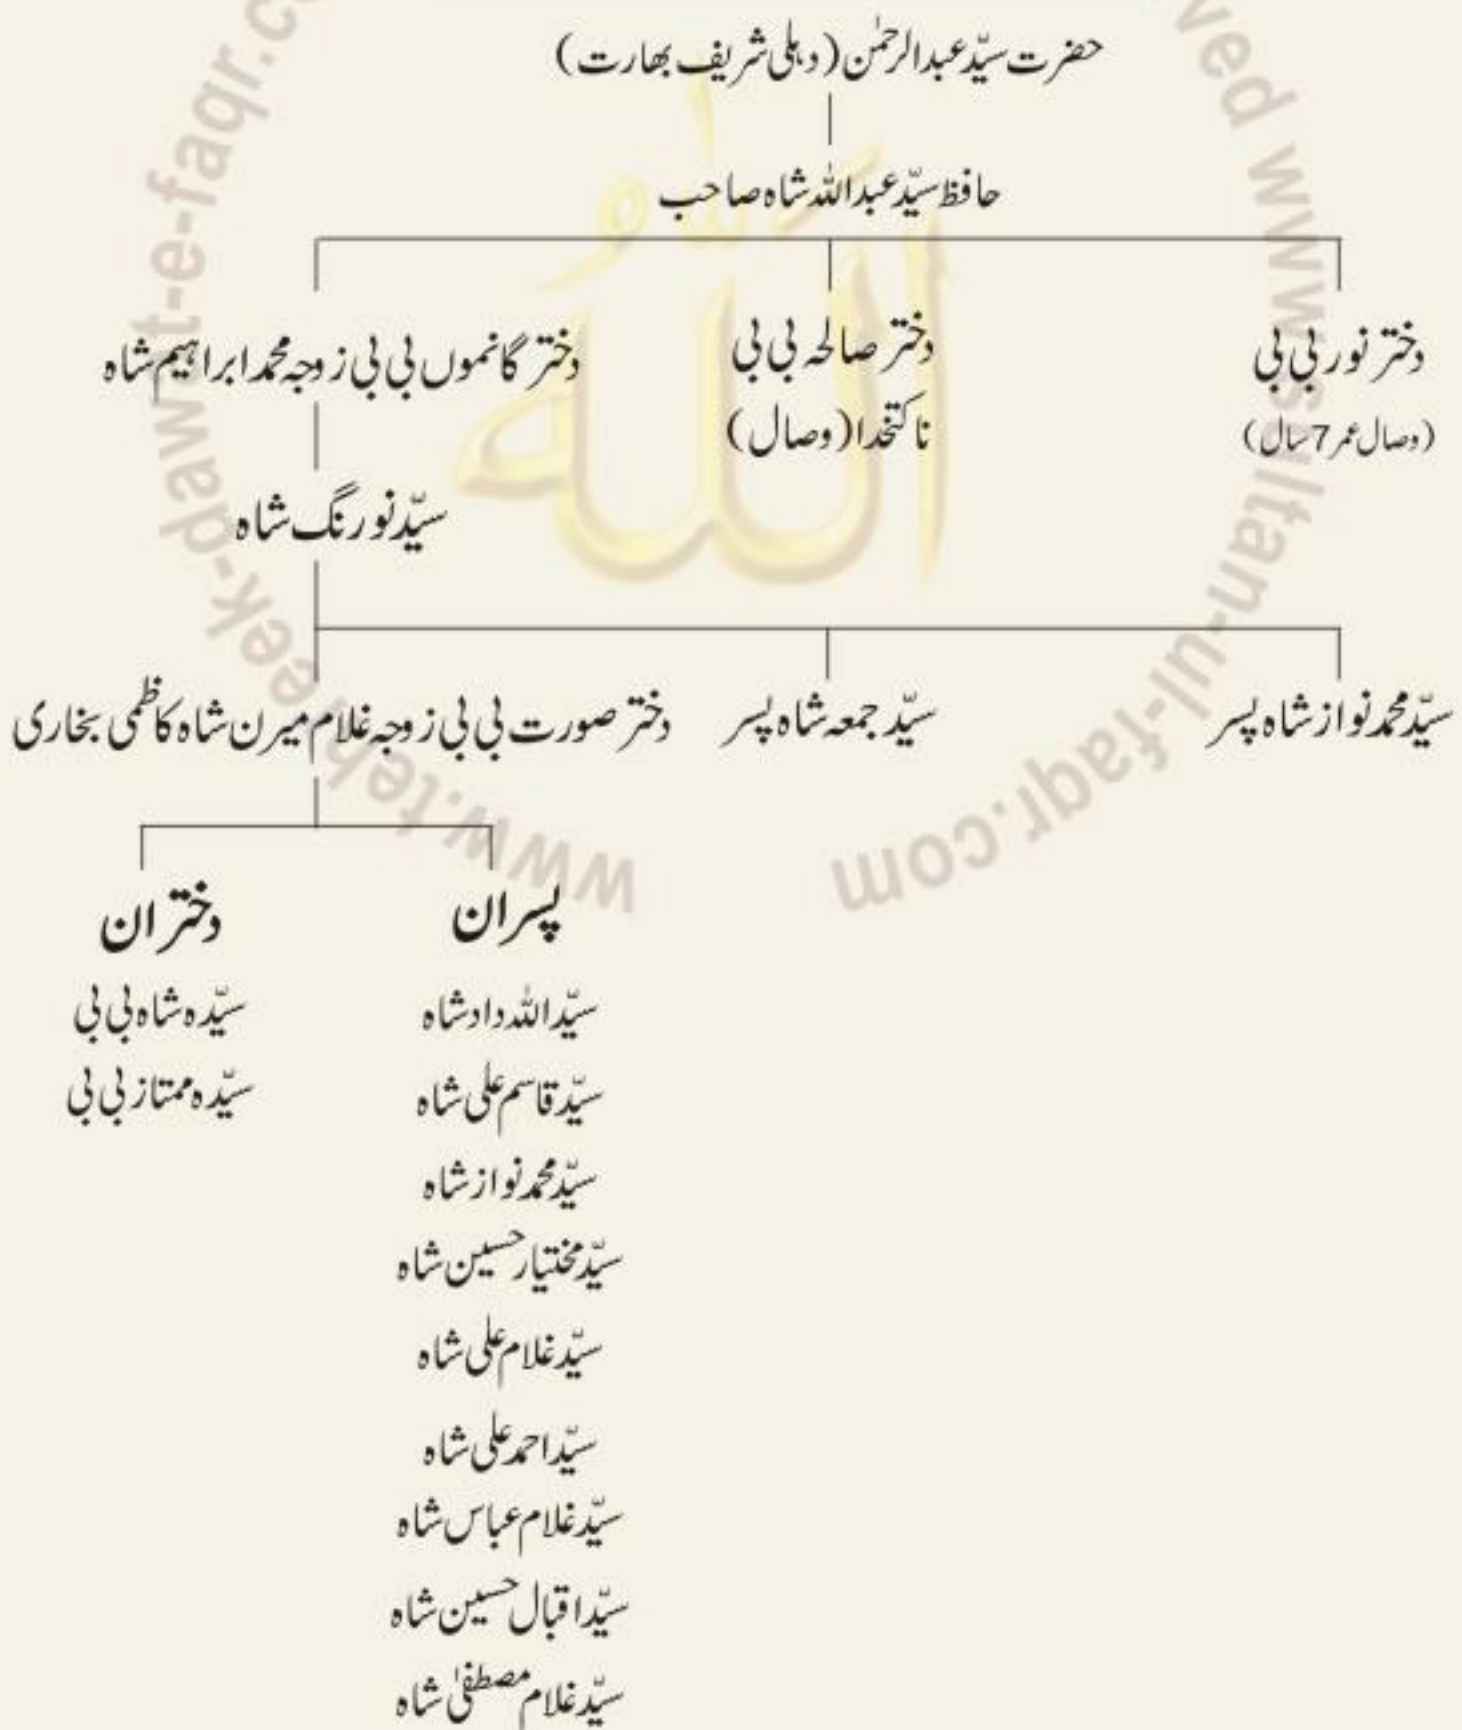 حضرت سیّد عبدالرحمٰن (دہلی شریف بھارت)
حافظ سیّد عبداللہ شاہ صاحب
دختر نور بی بی
(وصال عمر 7 سال)
دختر صالحہ بی بی
ناکتخدا (وصال)
دختر گانموں بی بی زوجہ محمد ابراہیم شاہ
سیّد نورنگ شاہ
سیّد محمد نواز شاہ پسر
سیّد جمعہ شاہ پسر
دختر صورت بی بی زوجہ غلام میرن شاہ کاظمی بخاری
پسران
سیّد اللہ داد شاہ
سیّد قاسم علی شاہ
سیّد محمد نواز شاہ
سیّد مختیار حسین شاہ
سیّد غلام علی شاہ
سیّد احمد علی شاہ
سیّد غلام عباس شاہ
سیّد اقبال حسین شاہ
سیّد غلام مصطفیٰ شاہ
دختران
سیّدہ شاہ بی بی
سیّدہ ممتاز بی بی
اللہ
www.sultan-ul-faqr.com